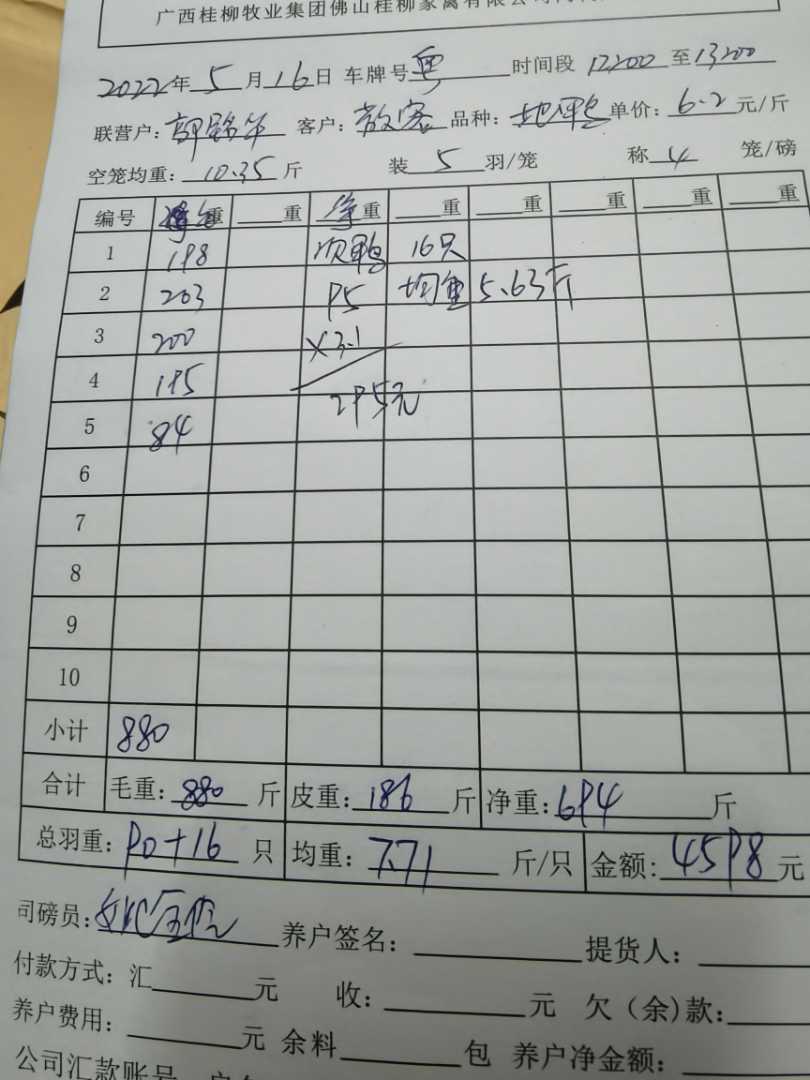 广西桂柳牧业集团佛山桂柳家禽有限公司
2022年5月16日 车牌号粤 时间段 12:00 至13:00
联营户: 客户:散客 品种: 单价: 6.2 元/斤
空笼均重: 10.35 斤 装 5 羽/笼 称 4 笼/磅
编号 重 重 净重 重 重 重 重 重
1 198 次鸭 16只
2 203 95 均重 5.63斤
3 200 ×3.1
4 195 295元
5 84
6
7
8
9
10
小计 880
合计 毛重: 880 斤 皮重: 186 斤 净重: 694 斤
总羽重: 90+16 只 均重: 7.71 斤/只 金额: 4598 元
司磅员: 养户签名: 提货人:
付款方式: 汇 元 收: 元 欠(余)款:
养户费用: 元 余料 包 养户净金额:
公司汇款账号